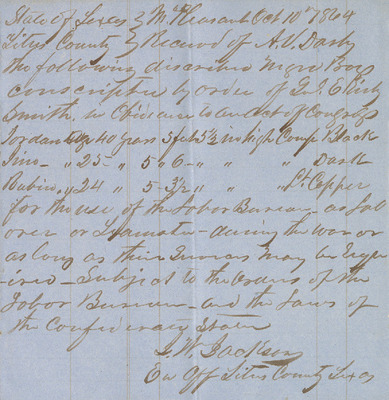 State of Texas } Mt Pleasant Oct 10th 1864
Titus County } Recievd of A. V. Darby
the following discribed Negro Boys
conscripted by order of Gnl E Kirby
Smith. in Obidiance to an act of Congress
Jordan Age 40 years 5 feet 5½ in high Comp Black
Jim - " 25 - " 5 " 6 - " " " Dark
Rubin. " 24 " 5 - 3½ " " " Lt. Copper
for the use of the Labor Bureau as Lab
orer or Teamster - during the war or
as long as their Services may be requ
ired - Subject to the orders of the
Labor Bureau and the Laws of
the Confederacy States
G. W. Jackson
En Off Titus County Texas